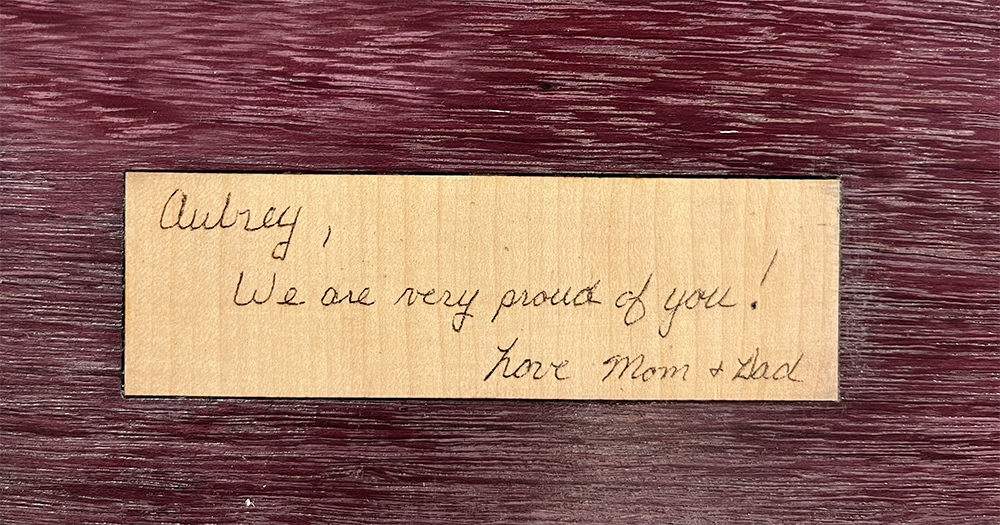 Aubrey,
We are very proud of you!
Love Mom + Dad